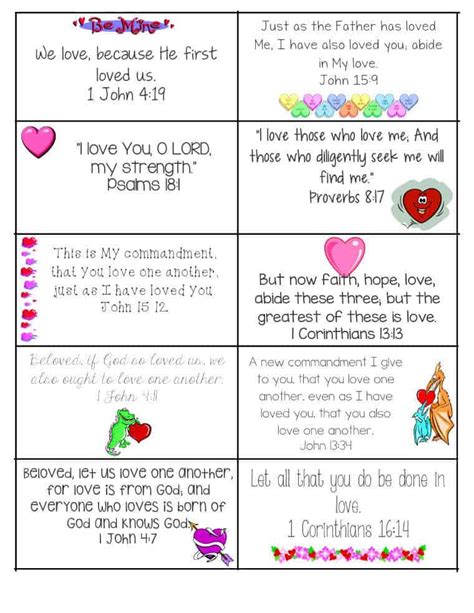 Be Mine
We love, because He first
loved us.
1 John 4:19
Just as the Father has loved
Me, I have also loved you; abide
in My love.
John 15:9
"I love You, O LORD,
my strength."
Psalms 18:1
"I love those who love me; And
those who diligently seek me will
find me."
Proverbs 8:17
This is My commandment,
that you love one another,
just as I have loved you.
John 15 12
But now faith, hope, love,
abide these three; but the
greatest of these is love.
1 Corinthians 13:13
Beloved, if God so loved us, we
also ought to love one another.
1 John 4:11
A new commandment I give
to you, that you love one
another, even as I have
loved you, that you also
love one another.
John 13:34
Beloved, let us love one another,
for love is from God; and
everyone who loves is born of
God and knows God.
1 John 4:7
Let all that you do be done in
love.
1 Corinthians 16:14